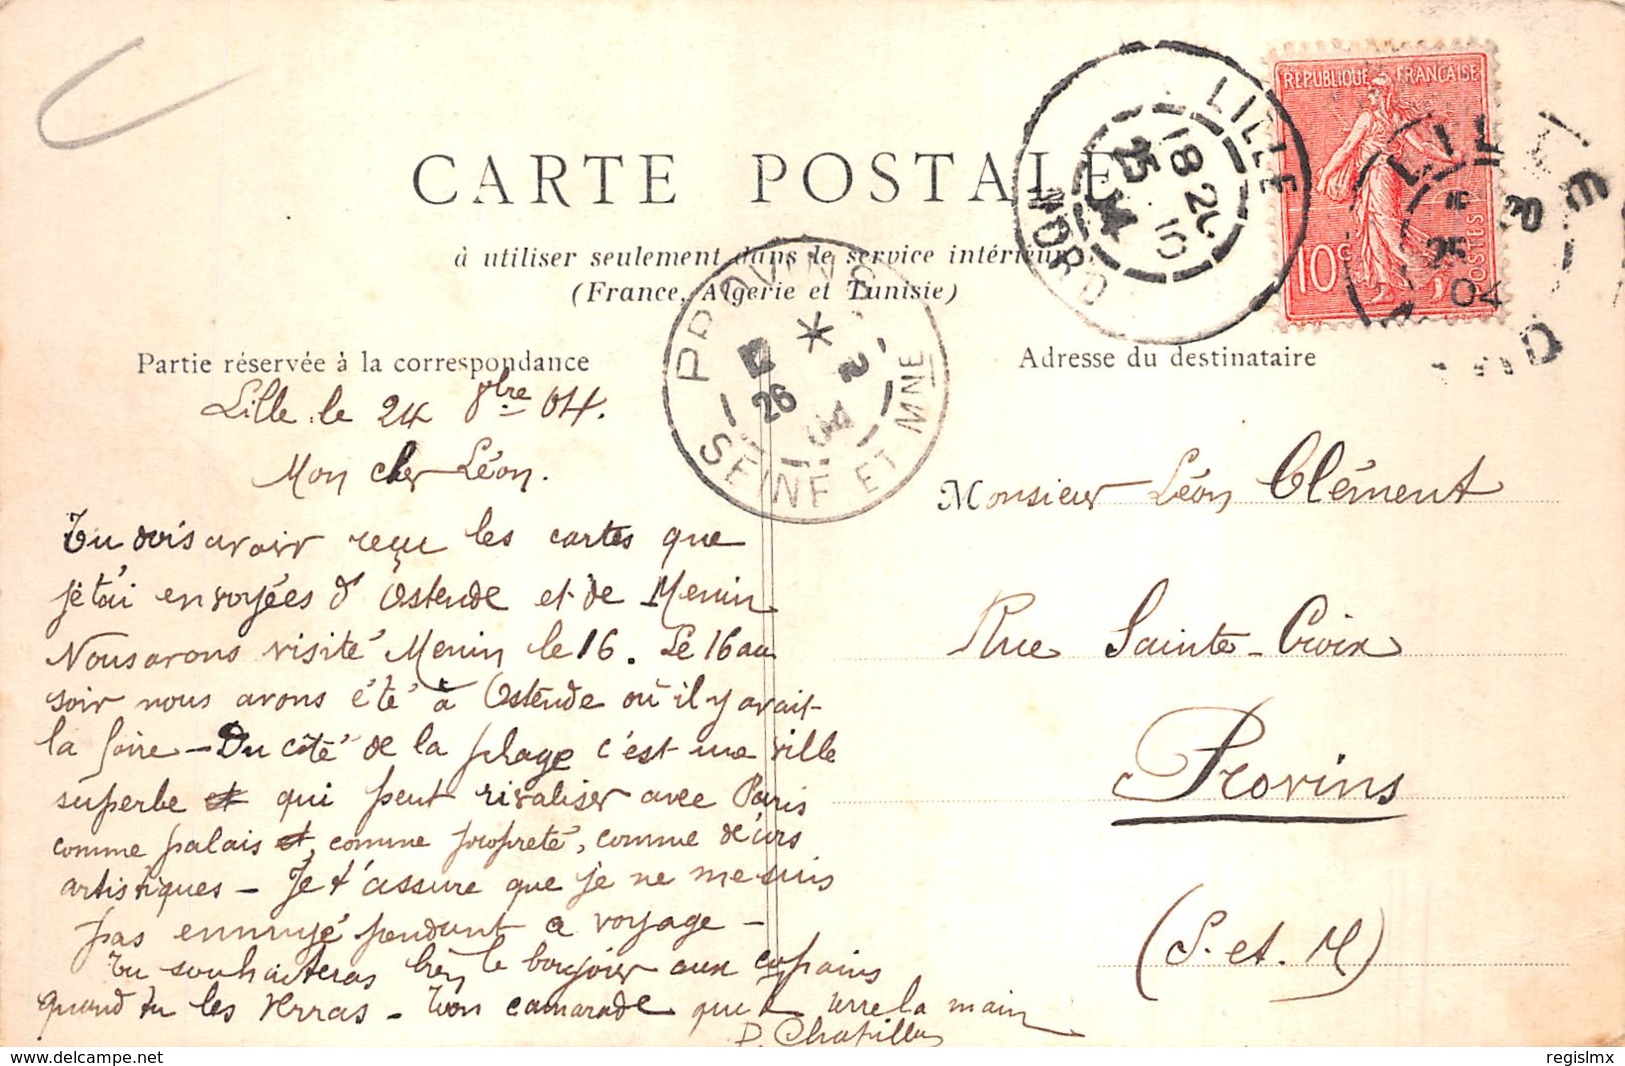 CARTE POSTALE
à utiliser seulement dans le service intérieur
(France, Algérie et Tunisie)
Partie réservée à la correspondance
Adresse du destinataire
REPUBLIQUE FRANÇAISE
10c POSTES
LILLE
18 20
25 10
04
NORD
LILLE
20
25
04
PROVINS
26
04
SEINE ET MNE
Lille le 24 8bre 04.
Mon cher Léon.
Tu dois avoir reçu les cartes que
je t'ai envoyées d'Ostende et de Menin
Nous avons visité Menin le 16. Le 16 au
soir nous avons été à Ostende où il y avait
la foire - Du côté de la plage c'est une ville
superbe et qui peut rivaliser avec Paris
comme palais et, comme propreté, comme
artistiques - Je t'assure que je ne me suis
pas ennuyé pendant ce voyage -
Tu souhaiteras bien le bonjour aux copains
quand tu les verras - Ton camarade qui te serre la main
Monsieur Léon Clément
Rue Sainte-Croix
Provins
(S. et. M)
delcampe.net
regislmx